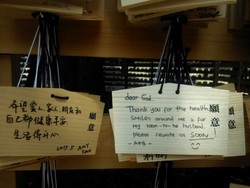 希望愛人、家人、朋友和
自己都健康平安
生活得开心
2015.5 AMY
願意
dear God
Thank you for the health,
smiles around me & for
my soon-to-be husband.
please reunite us SOON
願意